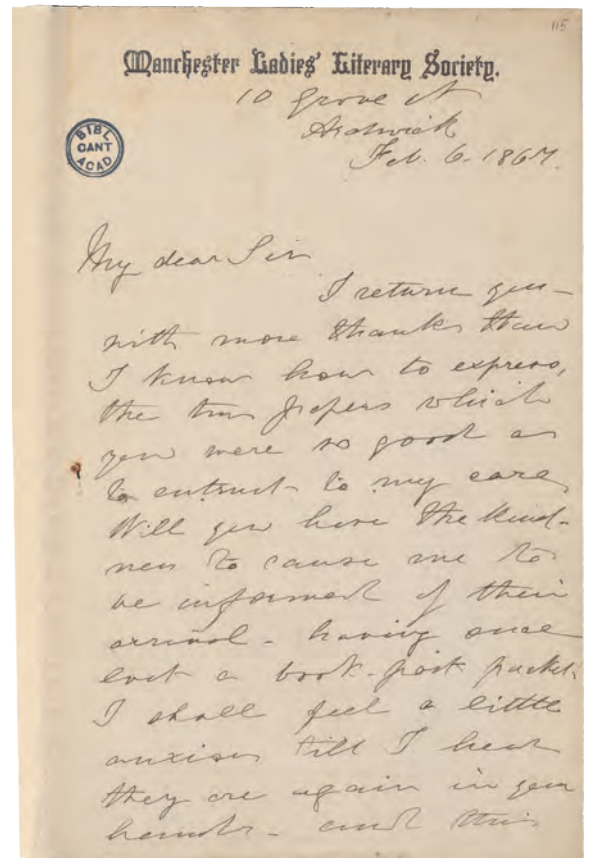 115
Manchester Ladies' Literary Society.
10 Grove St
Ardwick
Feb. 6. 1867.
BIBL
CANT
ACAD
My dear Sir
I return you
with more thanks than
I know how to express,
the two papers which
you were so good as
to entrust to my care
Will you have the kind-
ness to cause me to
be informed of their
arrival - having once
lost a book-post packet
I shall feel a little
anxious till I hear
they are again in your
hands - and this